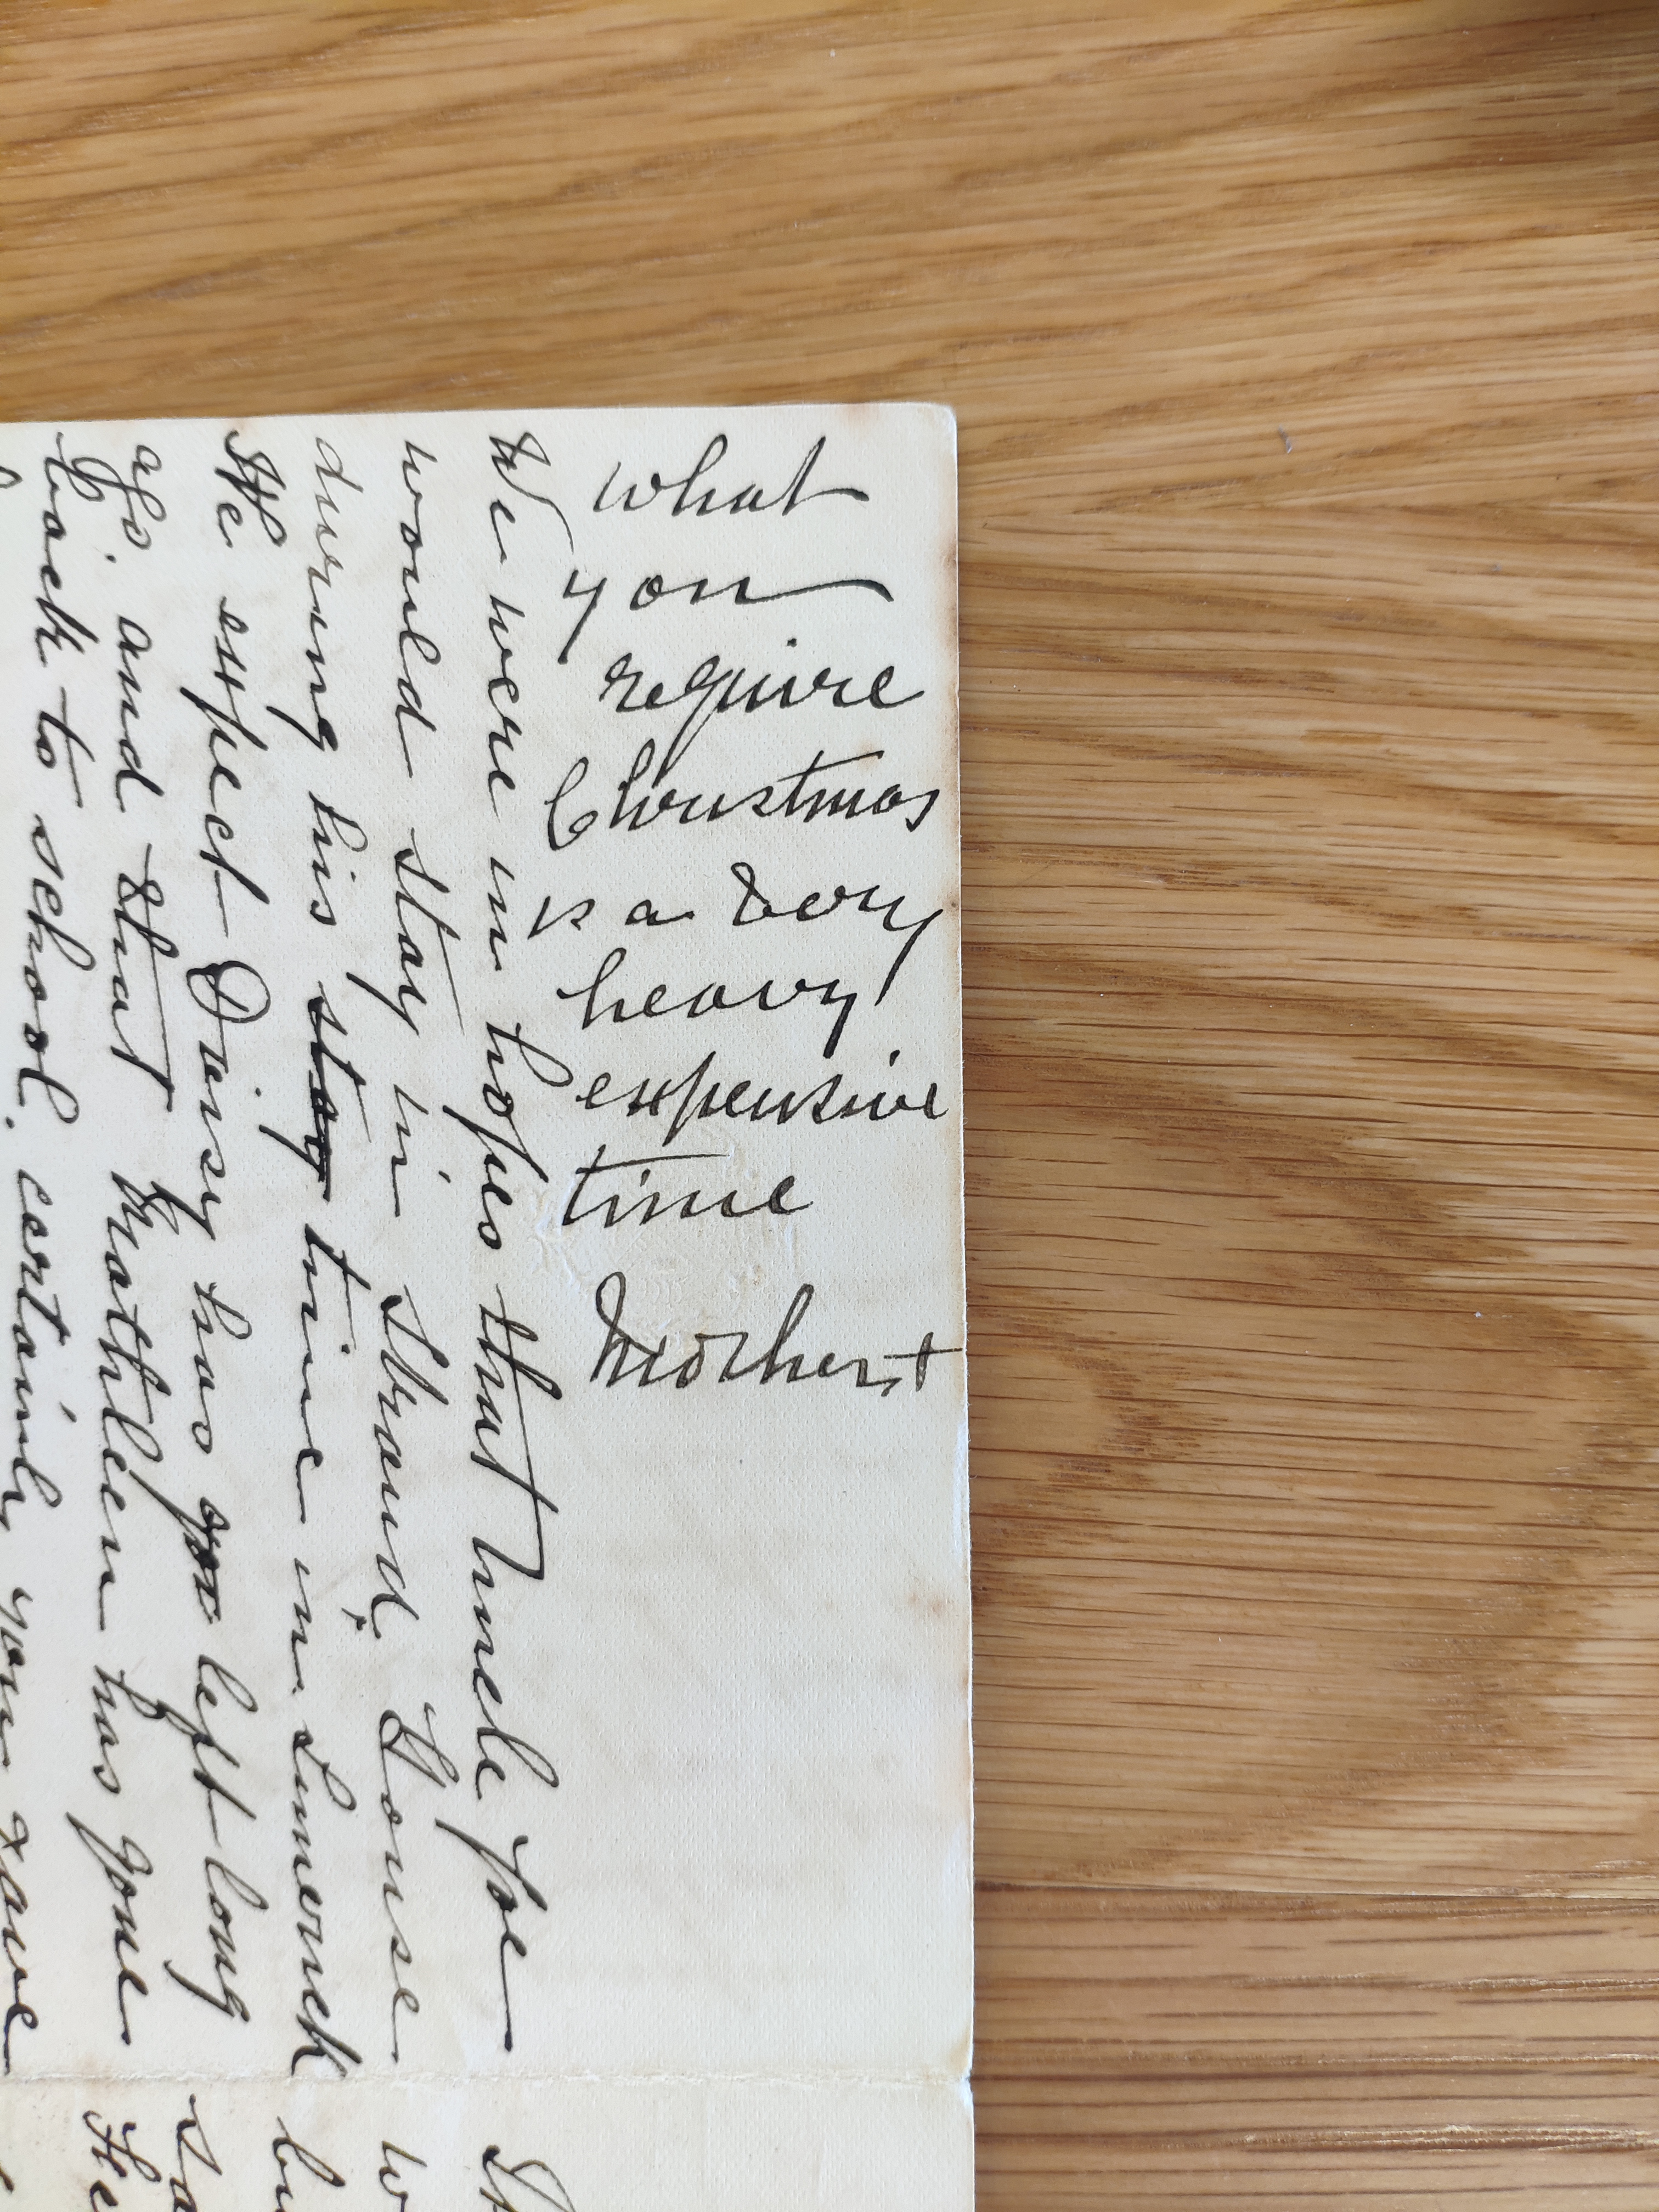 what
you
require
Christmas
is a very
heavy
expensive
time
Mother +
We were in hopes that Uncle Joe
would stay in Strand House
during his stay time in Limerick
We expect Daisy has gon left long
ago. and that Kathleen has gone
back to school. certainly you have